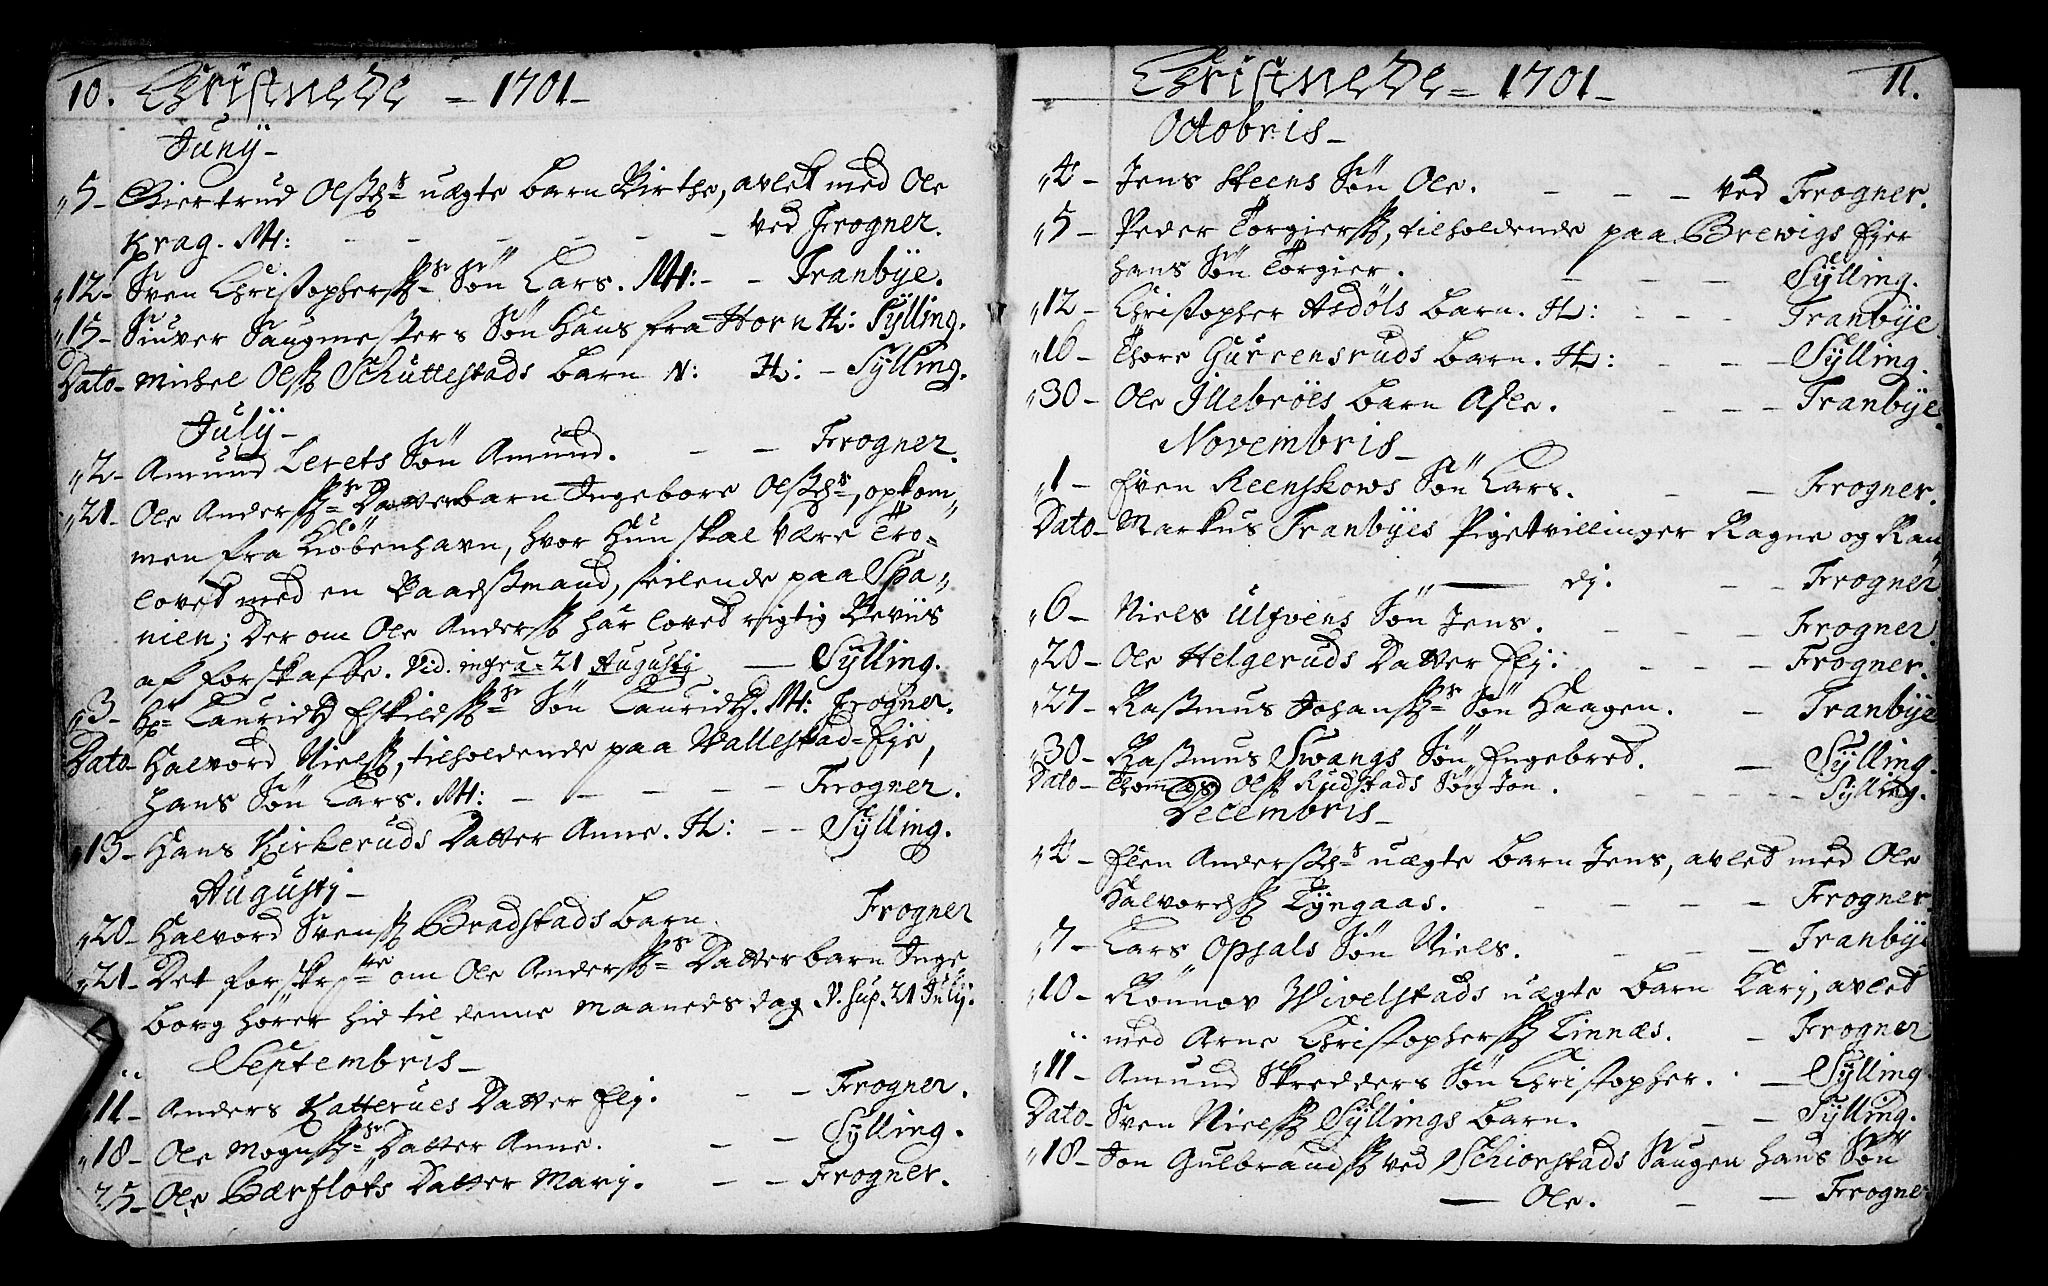 10. Christnede = 1701_
Junÿ_
„5_ Giertrud Olßds uægte barn Birthe, avlet med Ole
Krag. M: _ _ _ _ _ _ ved Frogner.
„12_ Sven Christophers Søn Lars. M: _ _ Tranbÿe.
„15_ Siuver Saugmesters Søn Hans fra Horn H: Sÿlling.
Dato_ Michel Ols Schuttestads barn N: H: _ Sÿlling.
Julÿ_
„2_ Amund Lerets Søn Amund. _ _ Frogner.
„21_ Ole Anders Datterbarn Ingebore Olßds, opkom„
men fra Kiøbenhavn, hvor hun skal være Tro=
lovet med en Baadßmand, seilende paa Spa„
nien; Der om Ole Anders har lovet rigtig Beviis
at forskaffe. Vid. infra 21 Augustj _ Sÿlling.
„3_ Hr Lauridtz Eskilds Søn Lauridtz. M: Frogner.
Dato_ Halvord Niels, tilholdende paa Vallestad=Eje,
hans Søn Lars. M: _ _ _ _ _ Frogner.
„13_ Hans Kirkeruds Datter Anne. H: _ _ Sÿlling.
Augustj_
„20_ Halvord Svens Bradstads barn. Frogner
„21_ Det forskrefne om Ole Anders Datterbarn Inge
borg hører hid til denne Maaneds dag. V. sup. 21 Julij.
Septembris_
11_ Anders Katterues Datter Elj. _ _ Frogner.
„18_ Ole Mogens Datter Anne. _ _ Sÿlling.
25_ Ole Bærfløts Datter Marj. _ _ Frogner.
Christnede = 1701_ 11.
Octobris_
„4_ Jens Steens Søn Ole. _ _ _ ved Frogner.
„5_ Peder Torgiers, tilholdende paa Brewigs Ejer
hans Søn Torgier. _ _ _ Sÿlling.
„12_ Christopher Asdøls barn. H: _ _ _ Tranbÿe
„16_ Thore Gurrensruds barn. H: _ _ Sÿlling.
„30_ Ole Illebrøes barn Asle. _ _ _ Tranbÿe.
Novembris_
„1_ Even Reenskows Søn Lars. _ _ Frogner.
Dato_ Markus Tranbÿes Pigetvillinger Ragne og Ran„
dj. _ _ Frogner
„6_ Niels Ulfvens Søn Jens. _ _ _ Frogner.
„20_ Ole Helgeruds Datter Elj. _ _ _ Frogner.
„27_ Raßmus Johans Søn Haagen. _ Tranbÿe
„30_ Raßmus Swangs Søn Engebred. _ Sÿlling.
Dato_ Thomas Ols Rudstads Søn Jon. _ _ _ _ _ Sÿlling.
Decembris_
„4_ Elen Anderßds uægte barn Jens, avlet med Ole
Halvords Tyngaas. _ _ _ _ _ Frogner
„7_ Lars Opsals Søn Niels. _ _ _ Tranbÿe
„10_ Rønnov Wivelstads uægte barn Karj, avlet
med Arne Christophers Linnæs. _ Frogner
„11_ Amund Skredders Søn Christopher. _ Sÿlling
Dato_ Sven Niels Sÿllings barn. _ _ Sÿlling.
„18_ Jon Gulbrands ved Schiørstads Saugen hans Søn
_ Ole. _ _ Frogner